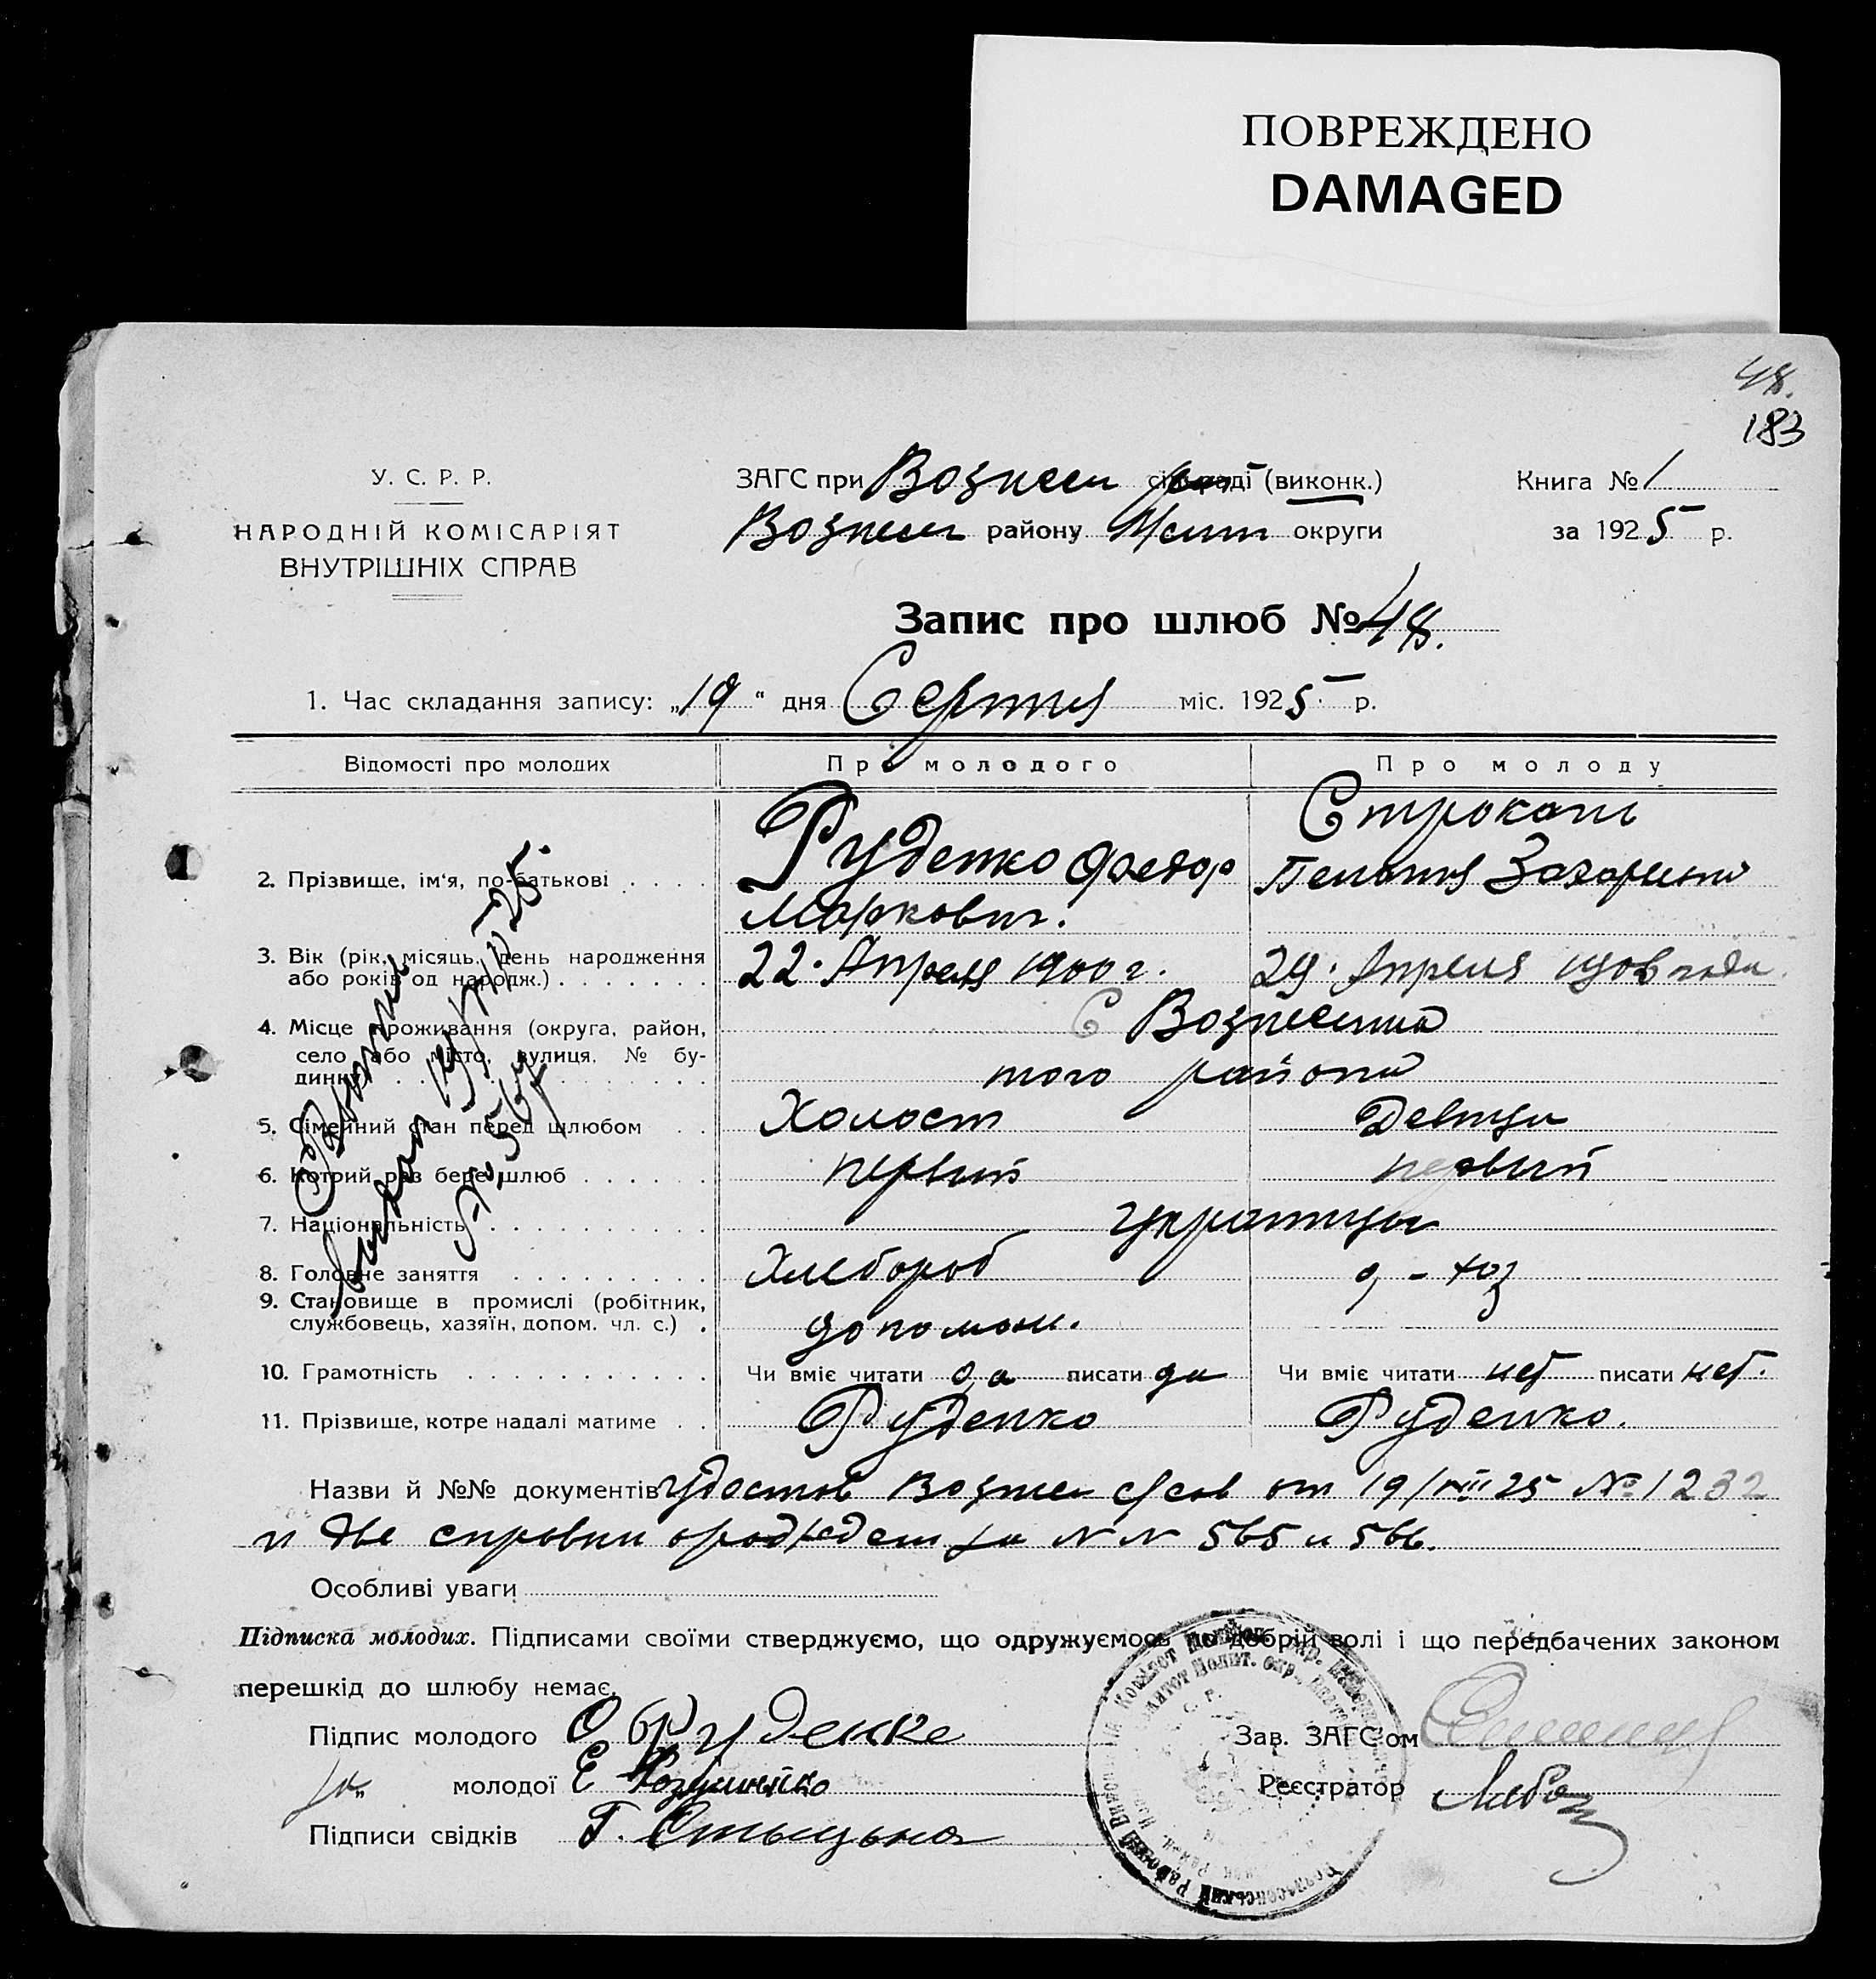 ПОВРЕЖДЕНО
DAMAGED
48.
183
У. С. Р. Р.
НАРОДНІЙ КОМІСАРІЯТ
ВНУТРІШНІХ СПРАВ
ЗАГС при Вознесен сільраді (виконк.)
Вознесен району округи
Книга № 1
за 1925 р.
Запис про шлюб № 48.
1. Час складання запису: „19“ дня Серпня міс. 1925 р.
Відомості про молодих Про молодого Про молоду
2. Прізвище, ім'я, по-батькові Руденко Федор Маркович. Строкань Пелагия Захарьевна
3. Вік (рік, місяць, день народження або років од народж.) 22. Апреля 1900 г. 29. Апреля 1906 года.
4. Місце проживання (округа, район, село або місто, вулиця. № будинку) С Вознесенка
того района
5. Сімейний стан перед шлюбом Холост Девица
6. Котрий раз бере шлюб первый первый
7. Національність украинцы
8. Головне заняття Хлебороб д-хоз
9. Становище в промислі (робітник, службовець, хазяїн, допом. чл. с.) допомаж.
10. Грамотність Чи вміє читати да писати да Чи вміє читати нет писати нет.
11. Прізвище, котре надалі матиме Руденко Руденко.
Назви й №№ документів удостов Вознесен от 19/VIII 25 № 1232
и две справки о рожден за N N 565 и 566.
Особливі уваги
Підписка молодих. Підписами своїми стверджуємо, що одружуємось по добрій волі і що передбачених законом
перешкід до шлюбу немає.
Підпис молодого Руденко
за молодої Е
Підписи свідків Г.
Зав. ЗАГС'ом
Реєстратор